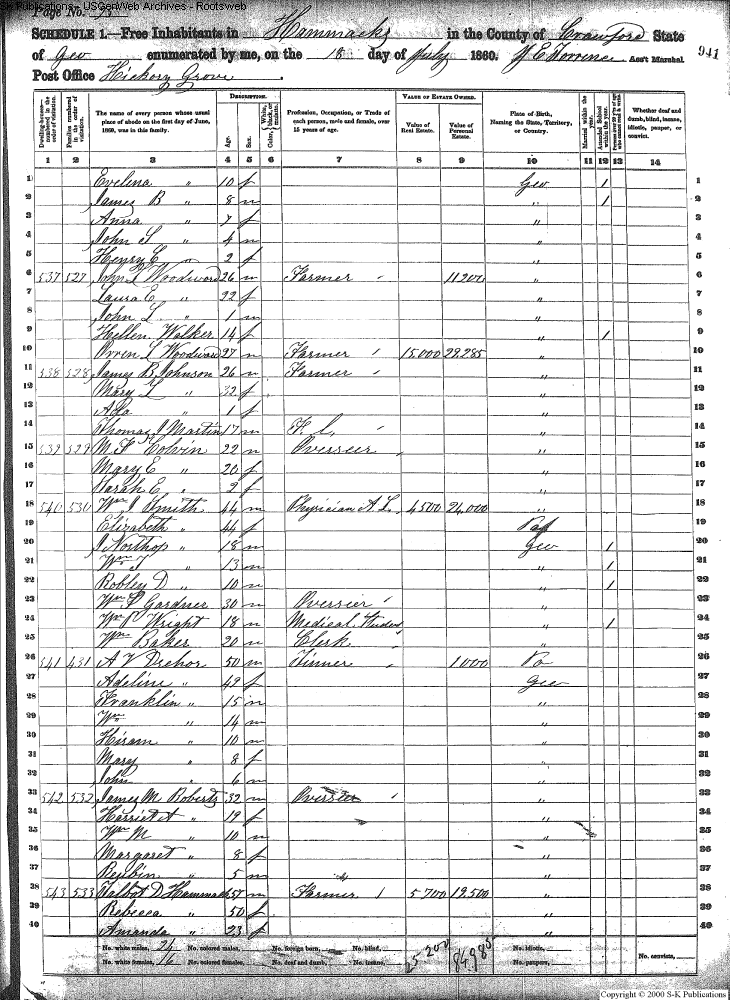 S-K Publications - USGenWeb Archives - Rootsweb
Page No.
SCHEDULE 1.—Free Inhabitants in Hammacks in the County of Crawford State
of Geo enumerated by me, on the 18 day of July 1860. Ass't Marshal 941
Post Office Hickory Grove
DESCRIPTION. VALUE OF ESTATE OWNED.
Dwelling-houses—numbered in the order of visitation. Families numbered in the order of visitation. The name of every person whose usual place of abode on the first day of June, 1860, was in this family. Age. Sex. Color, White, black, or mulatto. Profession, Occupation, or Trade of each person, male and female, over 15 years of age. Value of Real Estate. Value of Personal Estate. Place of Birth, Naming the State, Territory, or Country. Married within the year. Attended School within the year. Whether deaf and dumb, blind, insane, idiotic, pauper, or convict.
1 2 3 4 5 6 7 8 9 10 11 12 13 14
1 Evelina " 10 f Geo / 1
2 James B " 8 m " / 2
3 Anna " 7 f " 3
4 John S " 4 m " 4
5 Henry C " 2 f " 5
6 537 527 John T Woodward 26 m Farmer 11200 " 6
7 Laura E " 22 f " 7
8 John L " 1 m " 8
9 Hellen Walker 14 f " / 9
10 Orren T Woodward 27 m Farmer 15,000 29285 " 10
11 538 528 James B Johnson 26 m Farmer " 11
12 Mary " 32 f " 12
13 " 1 f " 13
14 Thomas J Martin 17 m F. L. " 14
15 539 529 M F Colvin 22 m Overseer " 15
16 Mary E " 20 f " 16
17 Sarah E " 2 f " 17
18 540 530 Wm J Smith 44 m Physician A. L. 4500 24,000 " 18
19 Elizabeth " 44 f 19
20 J Northop " 18 m Geo / 20
21 Wm T " 13 m " / 21
22 Robley D " 10 m " / 22
23 Wm S Gardner 30 m Overseer " 23
24 Wm Wright 18 m Medical Student " / 24
25 Wm Baker 20 m Clerk " 25
26 541 431 A V Drehor 50 m Tinner 1000 Pa 26
27 Adeline " 49 f Geo 27
28 Franklin " 15 m " 28
29 Wm " 14 m " 29
30 Hiram " 10 m " 30
31 Mary " 8 f " 31
32 John " 6 m " 32
33 542 532 James M Roberts 32 m Overseer " 33
34 Harriet A " 19 f " 34
35 Wm M " 10 m " 35
36 Margaret " 8 f " 36
37 Reubin " 5 m " 37
38 543 533 Talbot D Hammack 57 m Farmer 5700 19,500 " 38
39 Rebecca " 50 f " 39
40 Amanda " 23 f " 40
No. white males, 24 No. colored males, No. foreign born, No. blind, 25200 84,985 No. idiotic,
No. white females, 16 No. colored females, No. deaf and dumb, No. insane, No. paupers, No. convicts,
Copyright © 2000 S-K Publications